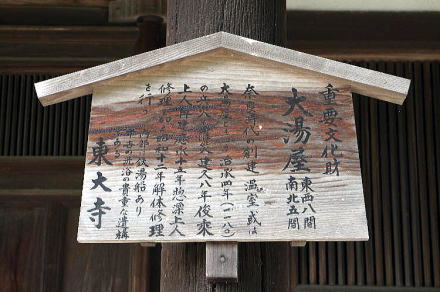 重要文化財
大湯屋
東西八間
南北五間
奈良時代の創建 温室或は
大湯屋と 治承四年(一一八〇)
の兵火 建久八年俊乗
上人 応永十五年惣深上人
修理 昭和十二年解体修理
を行
内部 鉄湯船あり
往古の洗浴の貴重な遺構
である
東大寺